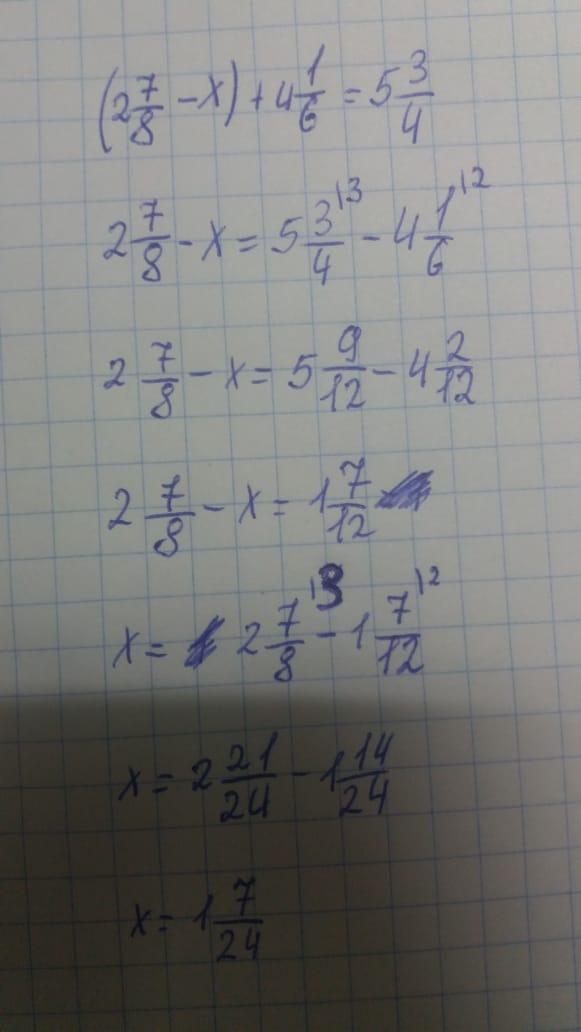 (2 7/8 - x) + 4 1/6 = 5 3/4
2 7/8 - x = 5 3/4 \3 - 4 1/6 \2
2 7/8 - x = 5 9/12 - 4 2/12
2 7/8 - x = 1 7/12
x = 2 7/8 \3 - 1 7/12 \2
x = 2 21/24 - 1 14/24
x = 1 7/24